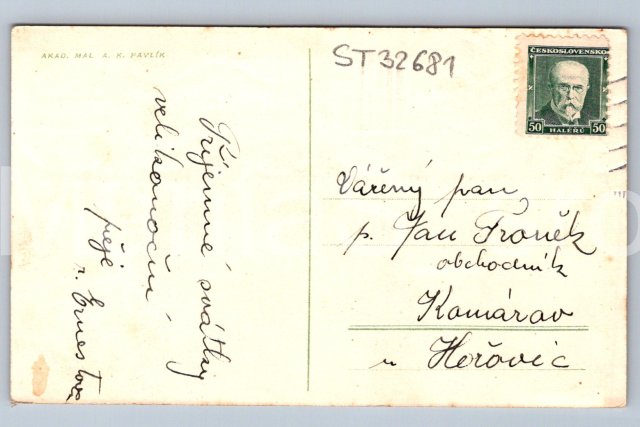 AKAD. MAL. A. K. PAVLÍK
ST32681
ČESKOSLOVENSKO
50 HALÉŘŮ 50
Příjemné svátky
velikonoční
přeje
r. Ernestova
Vážený pan
p. Jan
obchodník
Komárov
u Hořovic